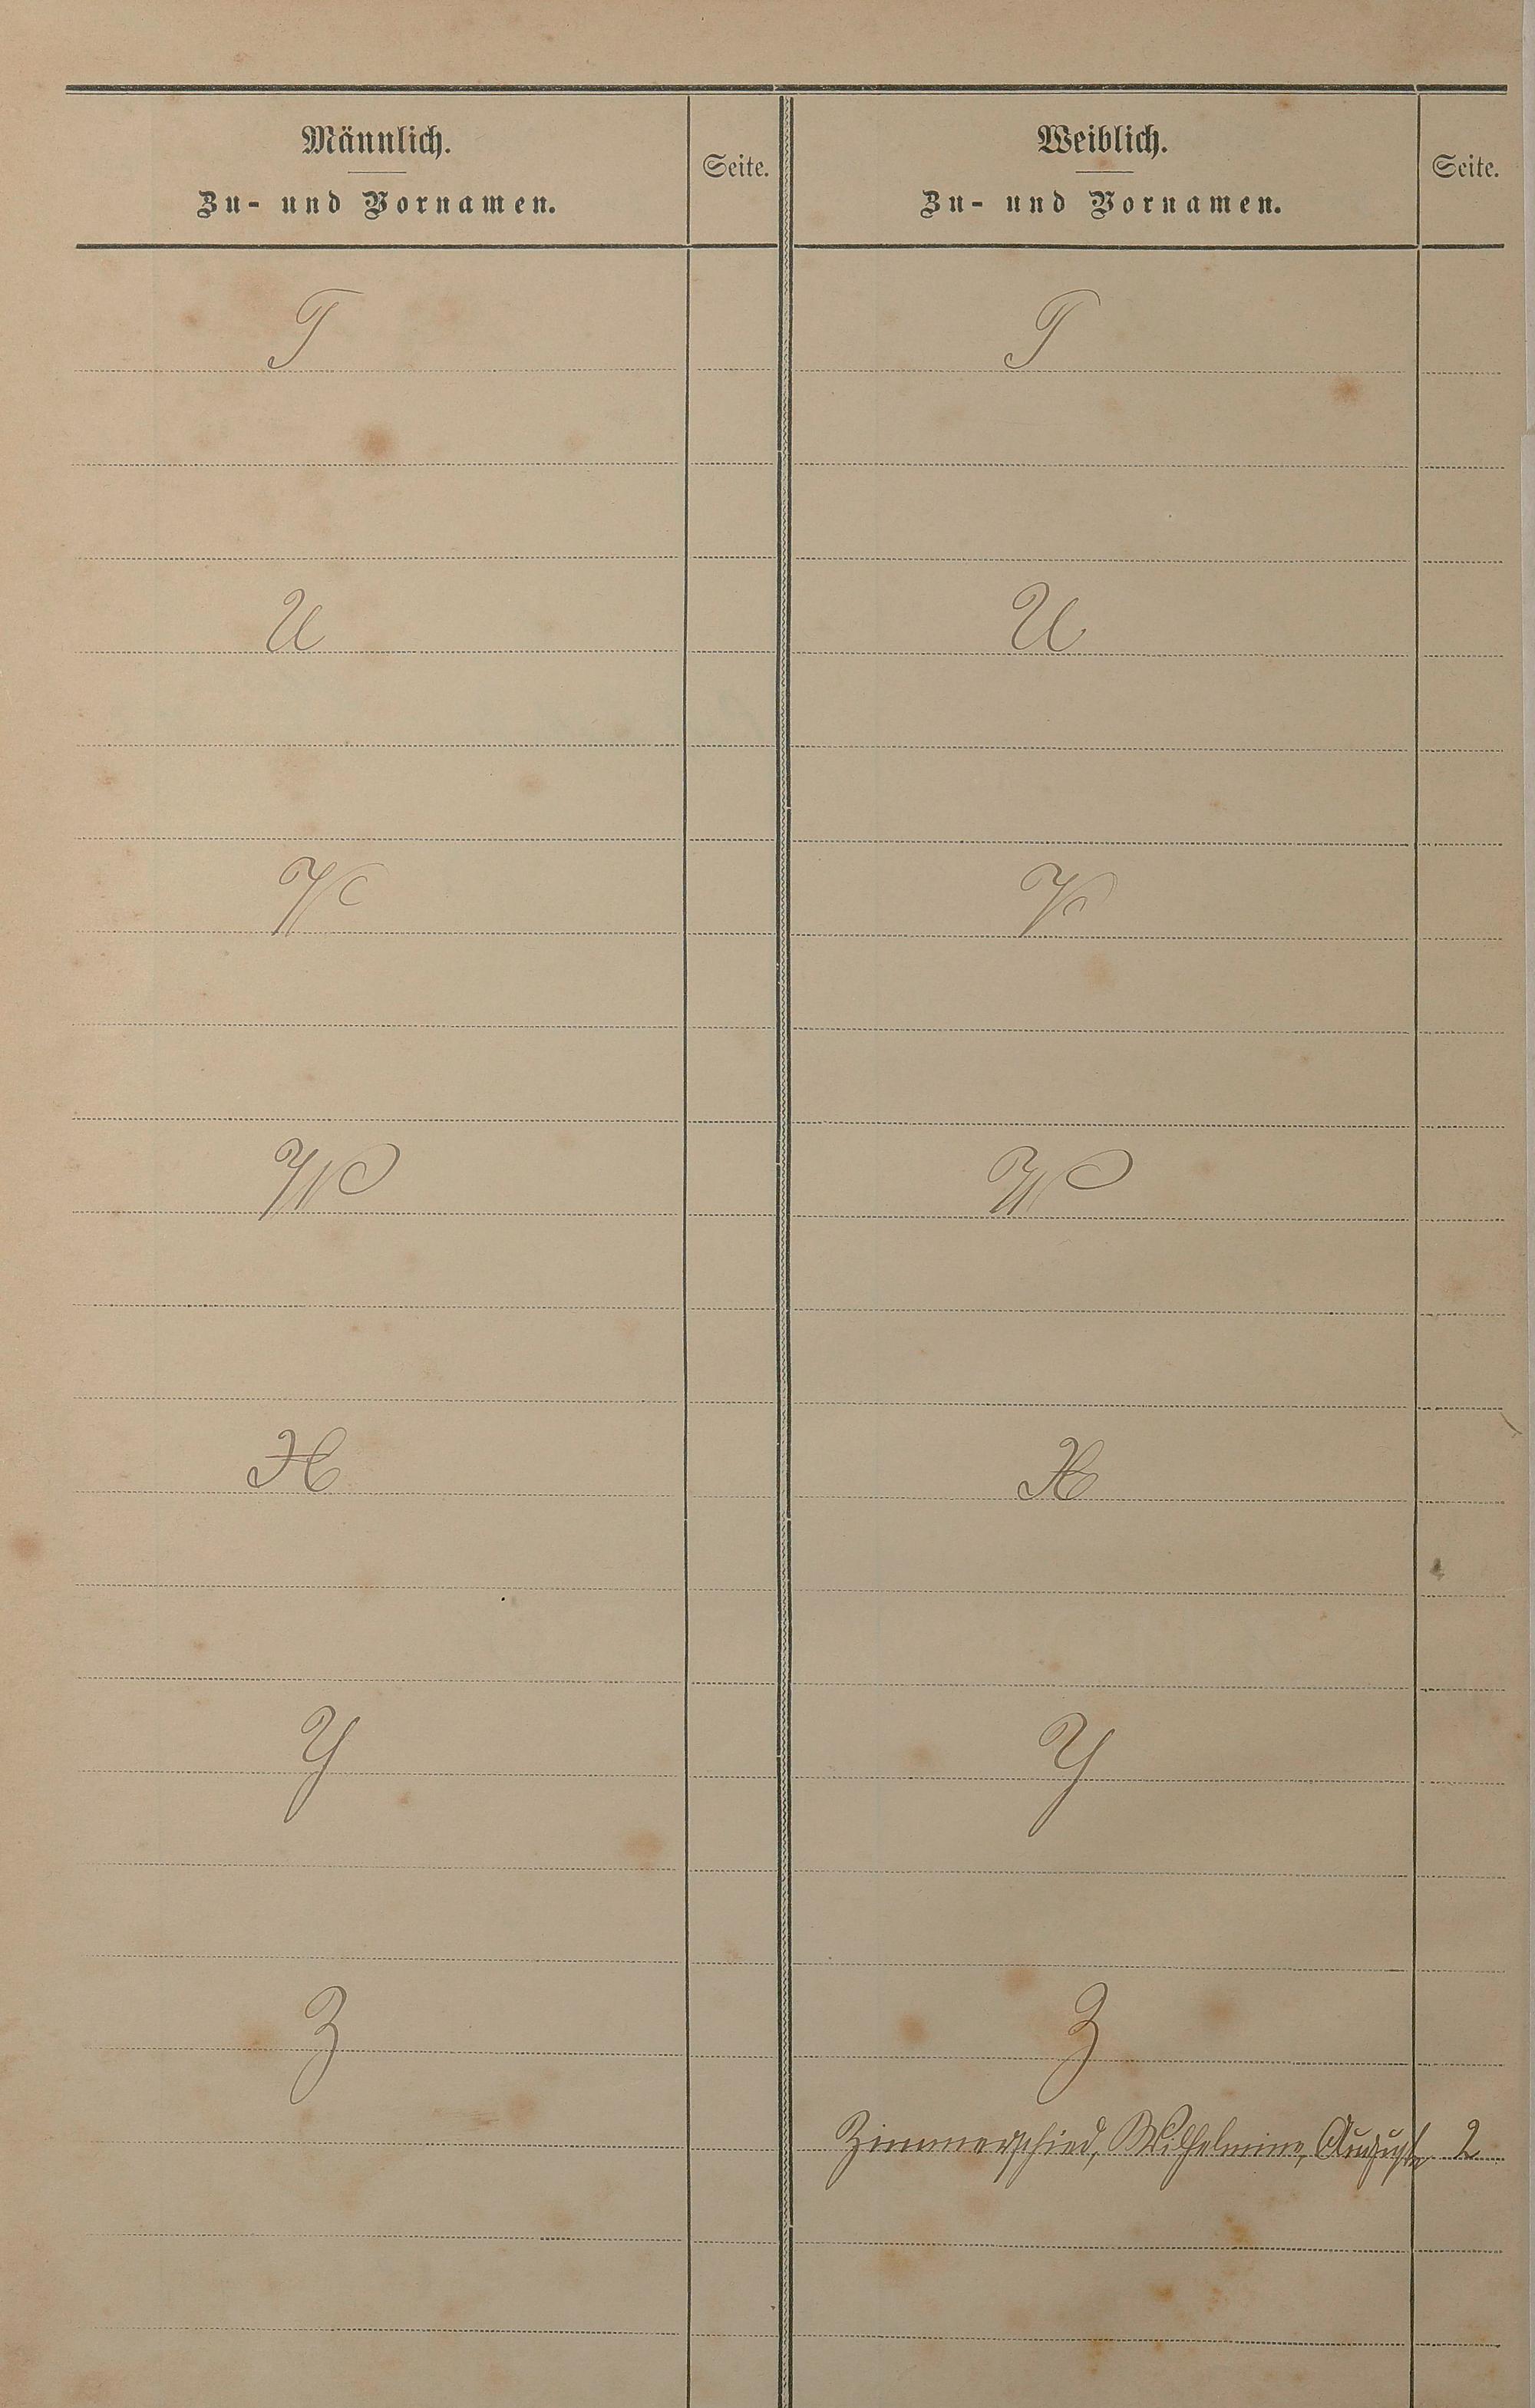 Männlich.
Zu- und Vornamen.
Seite.
Weiblich.
Zu- und Vornamen.
Seite.
T T
U U
V V
W W
X X
Y Y
Z Z
Zimmerschied, Wilhelmine, Auguste 2